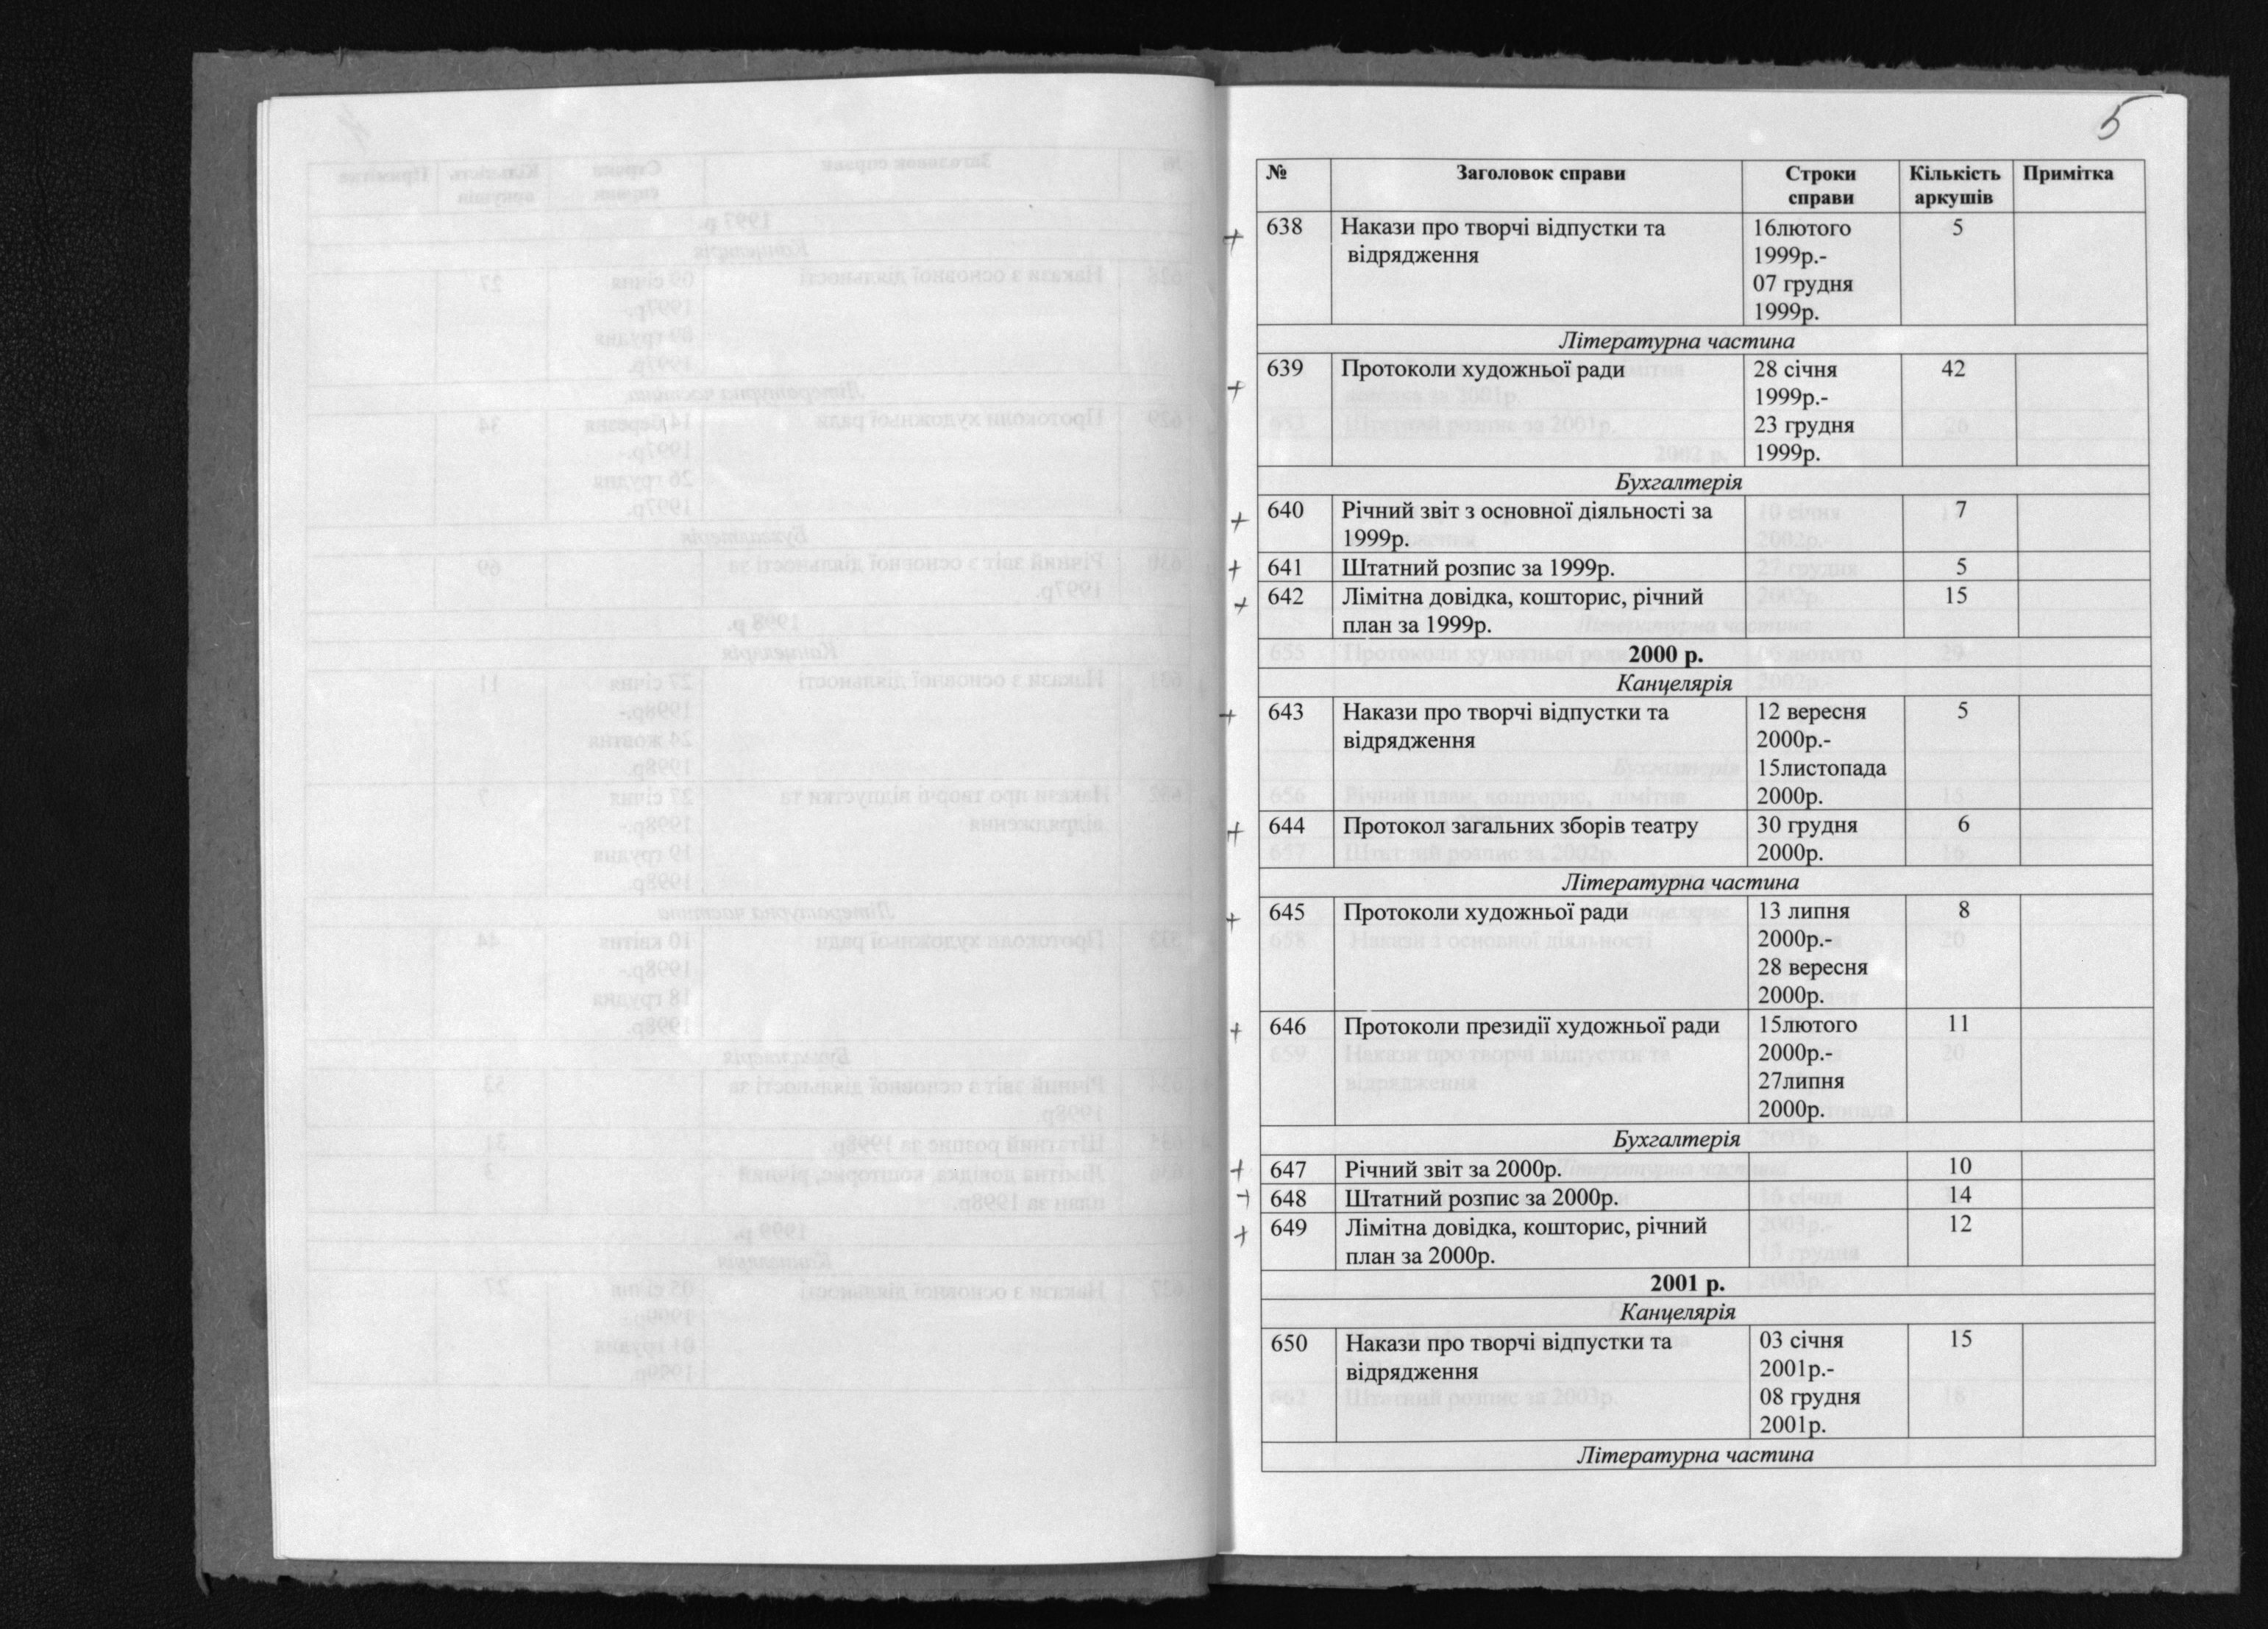 5
№ Заголовок справи Строки справи Кількість аркушів Примітка
+ 638 Накази про творчі відпустки та 16лютого 5
відрядження 1999р.-
07 грудня
1999р.
Літературна частина
+ 639 Протоколи художньої ради 28 січня 42
1999р.-
23 грудня
1999р.
Бухгалтерія
+ 640 Річний звіт з основної діяльності за 7
1999р.
+ 641 Штатний розпис за 1999р. 5
+ 642 Лімітна довідка, кошторис, річний 15
план за 1999р.
2000 р.
Канцелярія
+ 643 Накази про творчі відпустки та 12 вересня 5
відрядження 2000р.-
15листопада
2000р.
+ 644 Протокол загальних зборів театру 30 грудня 6
2000р.
Літературна частина
+ 645 Протоколи художньої ради 13 липня 8
2000р.-
28 вересня
2000р.
+ 646 Протоколи президії художньої ради 15лютого 11
2000р.-
27липня
2000р.
Бухгалтерія
+ 647 Річний звіт за 2000р. 10
+ 648 Штатний розпис за 2000р. 14
+ 649 Лімітна довідка, кошторис, річний 12
план за 2000р.
2001 р.
Канцелярія
650 Накази про творчі відпустки та 03 січня 15
відрядження 2001р.-
08 грудня
2001р.
Літературна частина